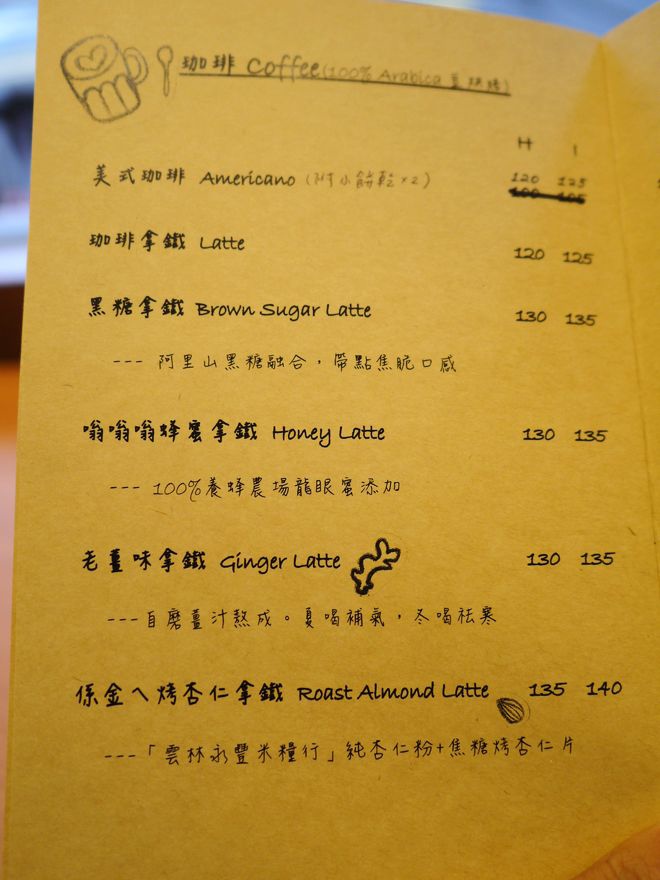 珈琲 Coffee (100% Arabica 豆烘焙)
H I
美式珈琲 Americano (附小餅乾×2) 120 125
100 105
珈琲拿鐵 Latte 120 125
黑糖拿鐵 Brown Sugar Latte 130 135
--- 阿里山黑糖融合，帶點焦脆口感
嗡嗡嗡蜂蜜拿鐵 Honey Latte 130 135
--- 100%養蜂農場龍眼蜜添加
老薑味拿鐵 Ginger Latte 130 135
---自磨薑汁熬成。夏喝補氣，冬喝祛寒
係金ㄟ烤杏仁拿鐵 Roast Almond Latte 135 140
---「雲林永豐米糧行」純杏仁粉+焦糖烤杏仁片